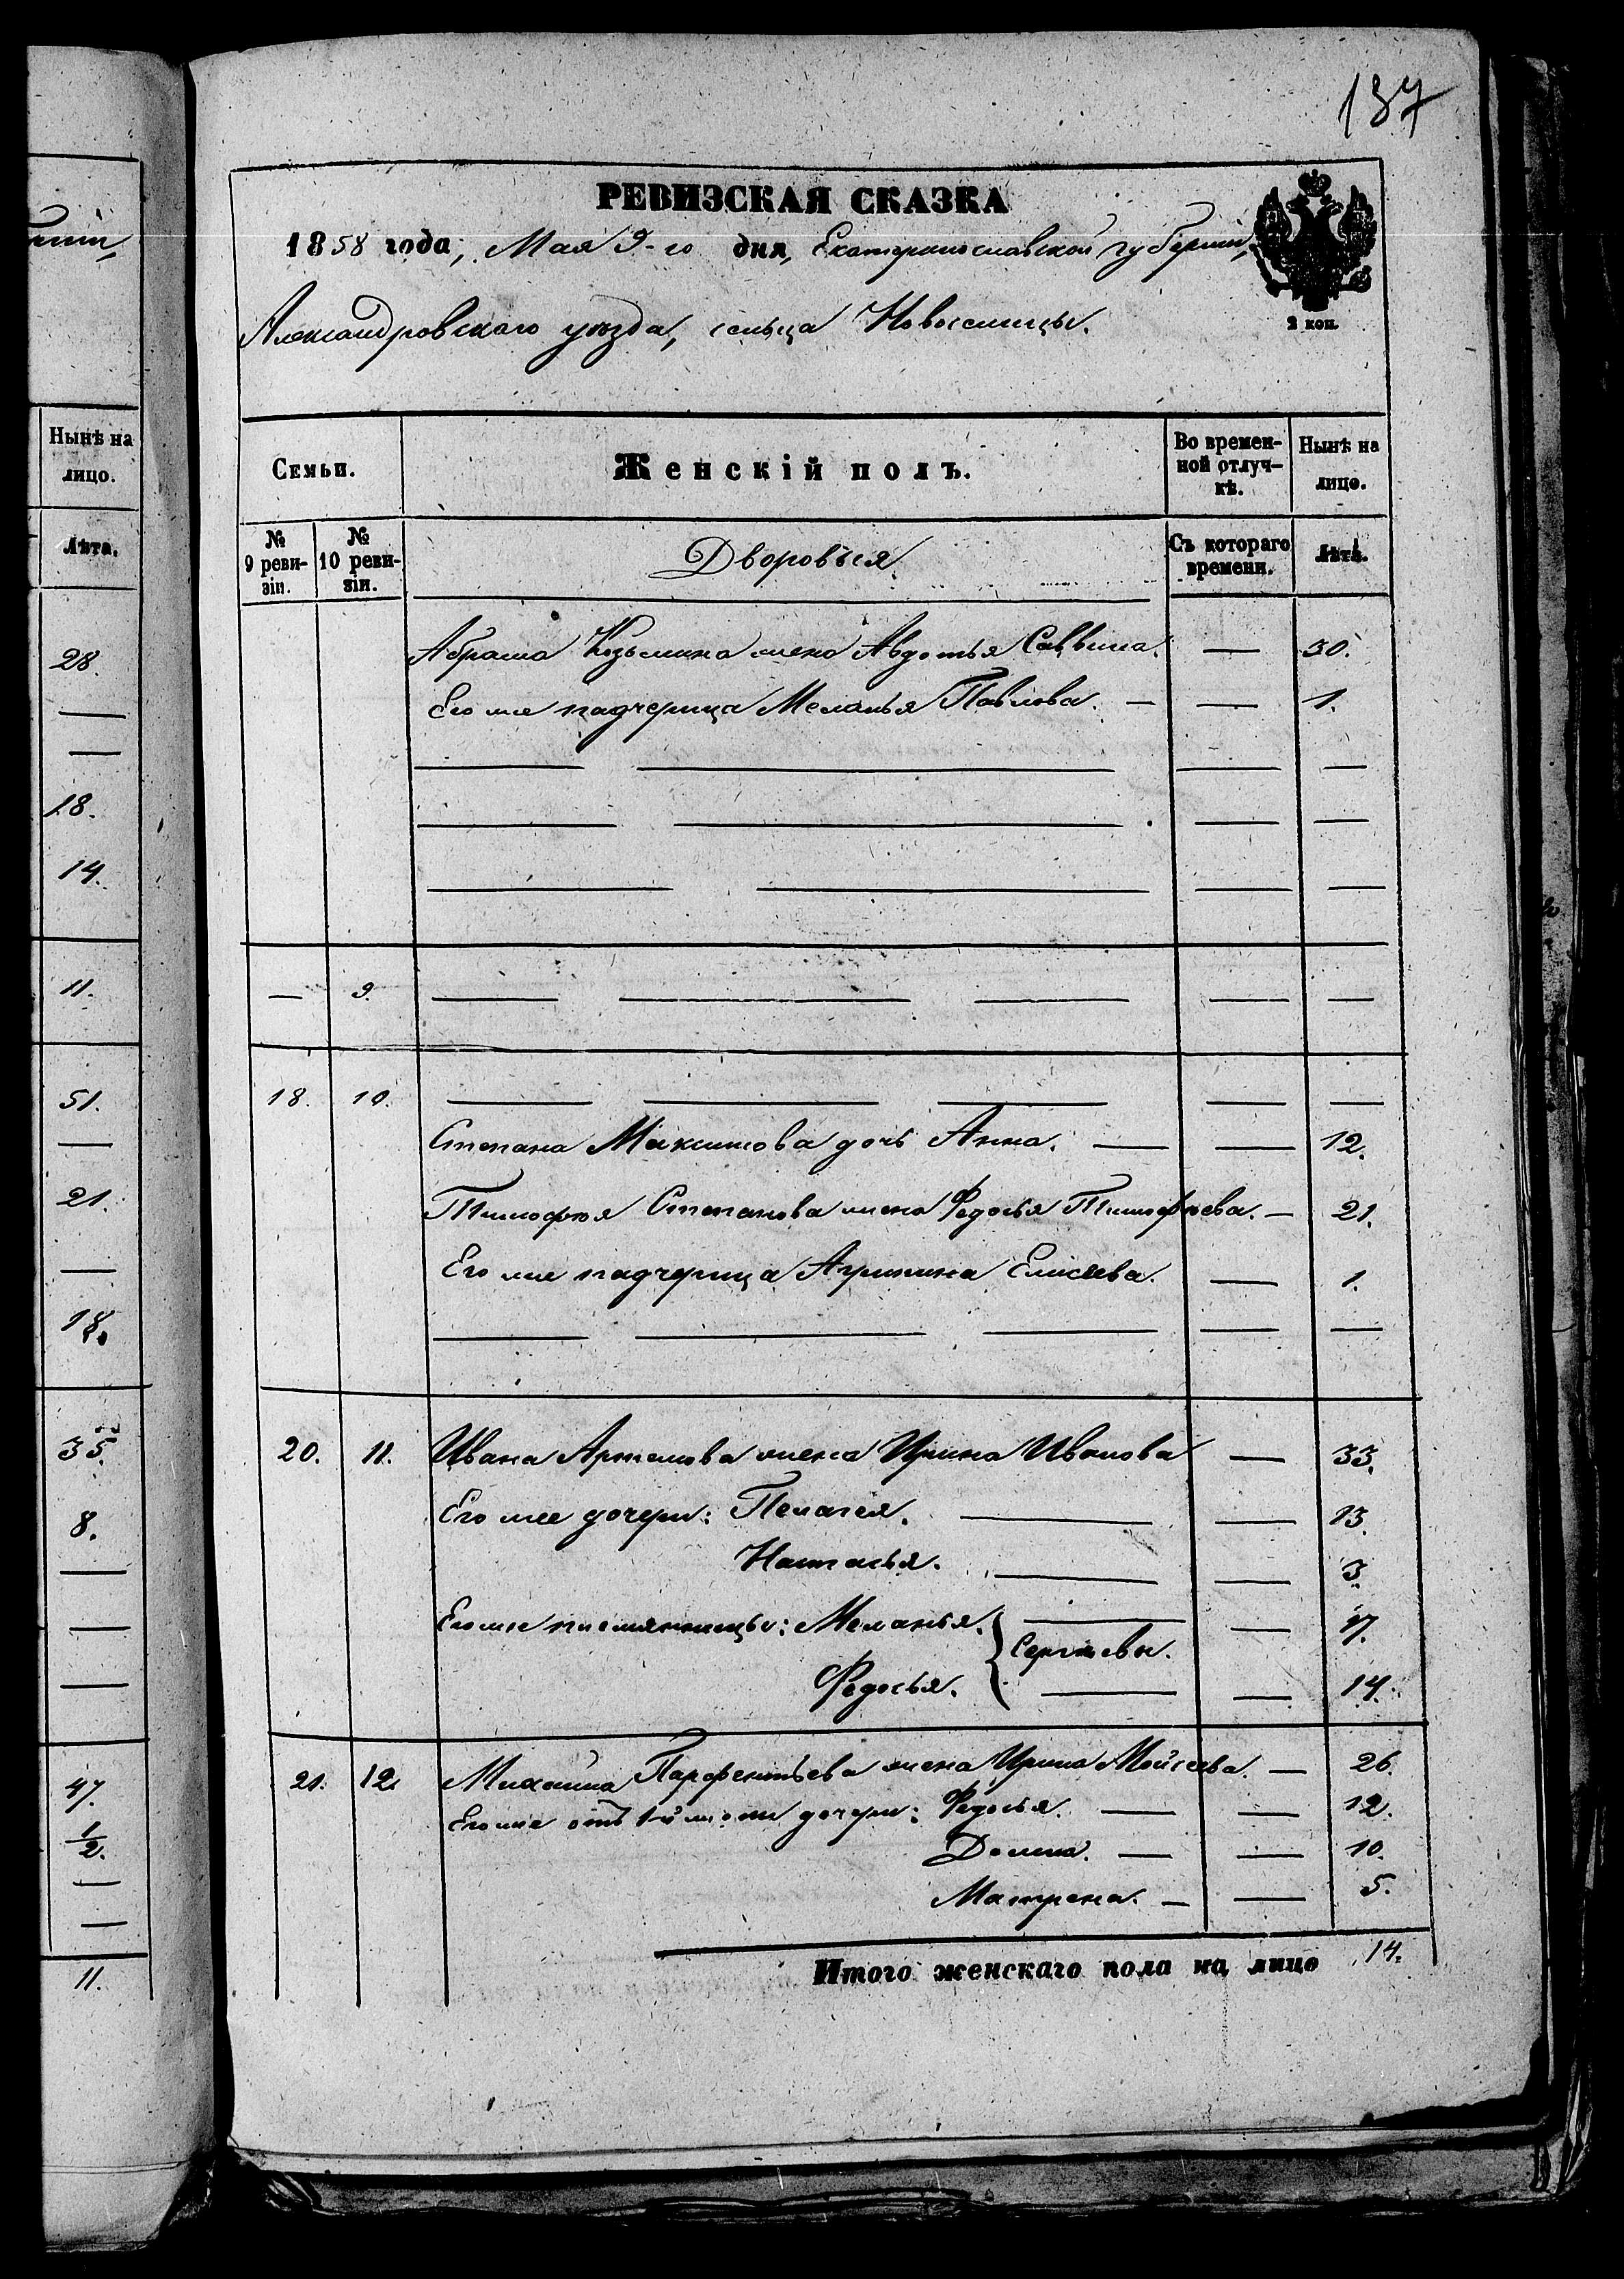 ніи,
Нынѣ на
лицо.
Лѣта.
28.
—
—
18.
14.
11.
51.
—
21.
—
18.
35.
8.
—
—
—
47.
1/2.
—
—
11.
137
РЕВИЗСКАЯ СКАЗКА
1858 года, Мая 9-го дня, Екатеринославской губерніи,
2 коп.
Александровскаго уѣзда, сельца
Семьи. Женскій полъ. Во времен-ной отлуч-кѣ. Нынѣ на лицо.
№ 9 реви-зіи. № 10 реви-зіи. Дворовыя Съ котораго времени. Лѣта.
Абрама Козьмина жена Авдотья Саввина. — 30.
Его же падчерица Меланья Павлова. — — 1.
— — — —
— — — —
— — — —
— 9. — — — — —
18. 10. — — — — —
Степана Максимова дочь Анна. — — 12.
Тимофея Степанова жена Федосья Тимофѣева. — 21.
Его же падчерица Агрипина Елисеева. — 1.
— — — — —
20. 11. Ивана Артемова жена Ирина Иванова — 33.
Его же дочери: Пелагея. — — 13.
Наталья. — — 3.
Его же племянницы: Меланья. — — 17.
Сергѣевы.
Федосья. — — 14.
21. 12. Михайла Парфентьева жена Ирина Мойсеева. — 26.
Его же отъ 1-й жены дочери: Федосья. — — 12.
Домна. — — 10.
Матрена. — — 5.
Итого женскаго пола на лицо 14.